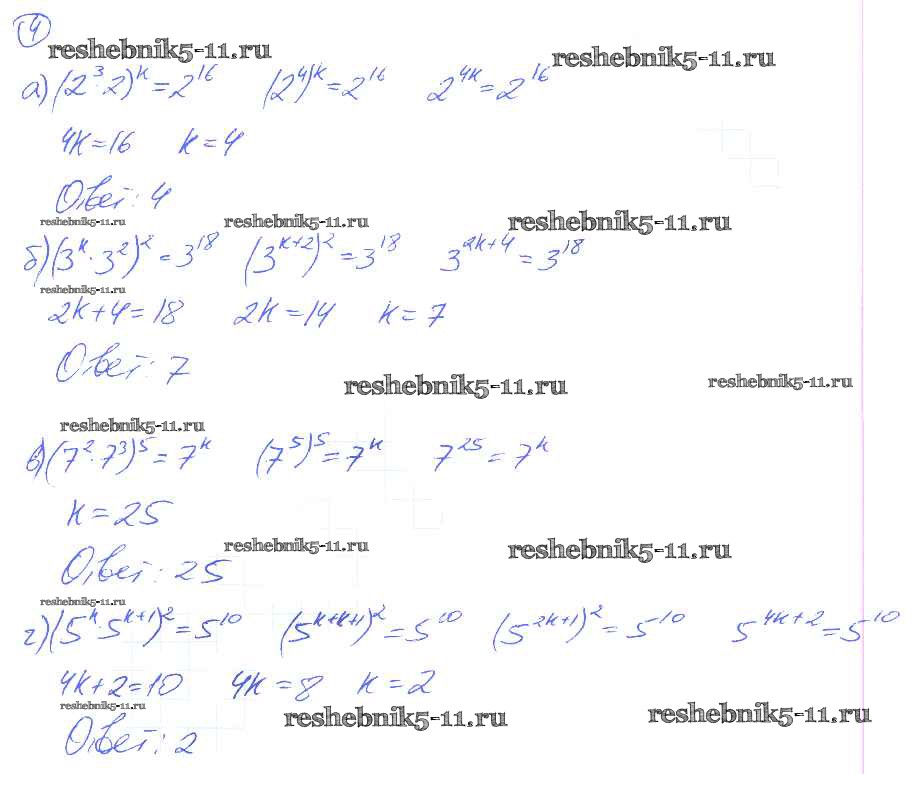 4
reshebnik5-11.ru reshebnik5-11.ru
а) (2³·2)ᵏ = 2¹⁶ (2⁴)ᵏ = 2¹⁶ 2⁴ᵏ = 2¹⁶
4k = 16 k = 4
Ответ: 4
reshebnik5-11.ru reshebnik5-11.ru reshebnik5-11.ru
б) (3ᵏ·3²)² = 3¹⁸ (3ᵏ⁺²)² = 3¹⁸ 3²ᵏ⁺⁴ = 3¹⁸
reshebnik5-11.ru
2k+4 = 18 2k = 14 k = 7
Ответ: 7
reshebnik5-11.ru reshebnik5-11.ru
reshebnik5-11.ru
в) (7²·7³)⁵ = 7ᵏ (7⁵)⁵ = 7ᵏ 7²⁵ = 7ᵏ
k = 25
reshebnik5-11.ru reshebnik5-11.ru
Ответ: 25
reshebnik5-11.ru
г) (5ᵏ·5ᵏ⁺¹)² = 5¹⁰ (5ᵏ⁺ᵏ⁺¹)² = 5¹⁰ (5²ᵏ⁺¹)² = 5¹⁰ 5⁴ᵏ⁺² = 5¹⁰
4k+2 = 10 4k = 8 k = 2
reshebnik5-11.ru reshebnik5-11.ru reshebnik5-11.ru
Ответ: 2